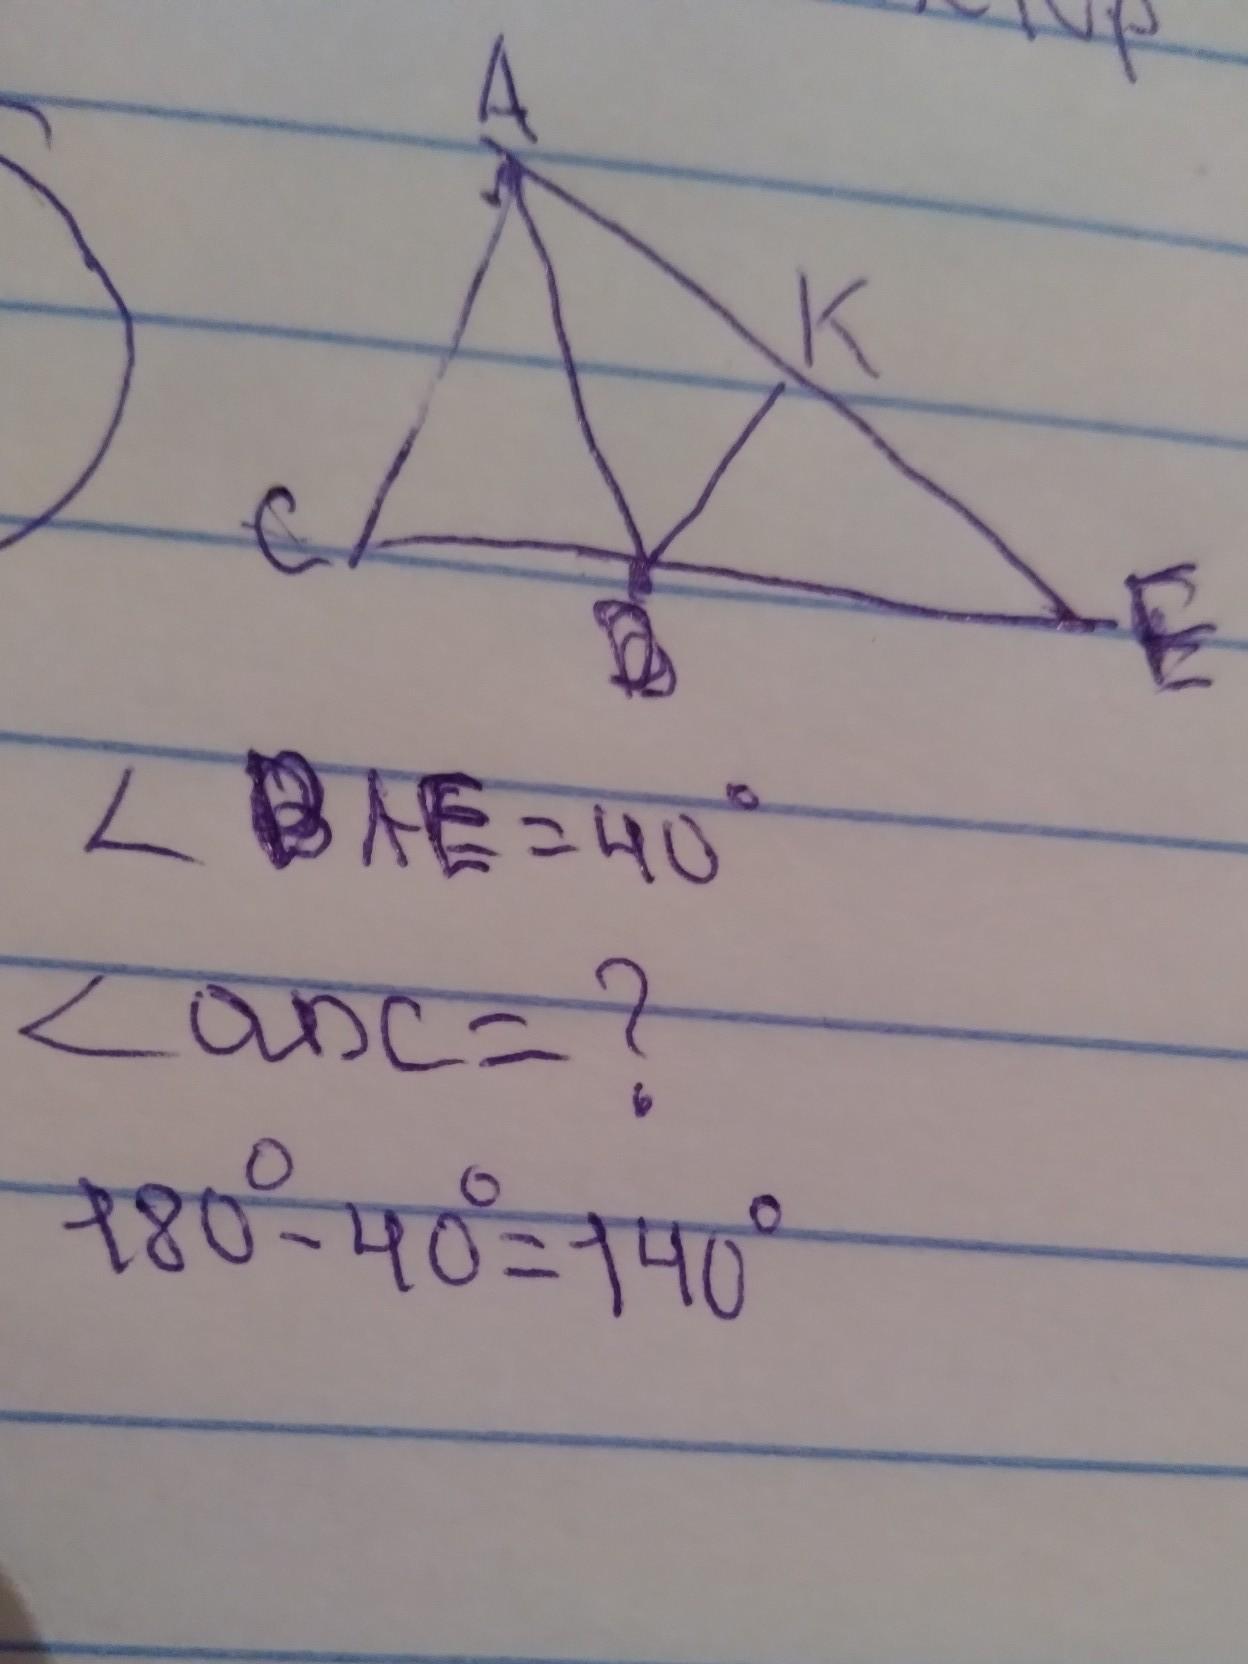 A
K
C
B
E
< BAE = 40°
< abc = ?
180° - 40° = 140°